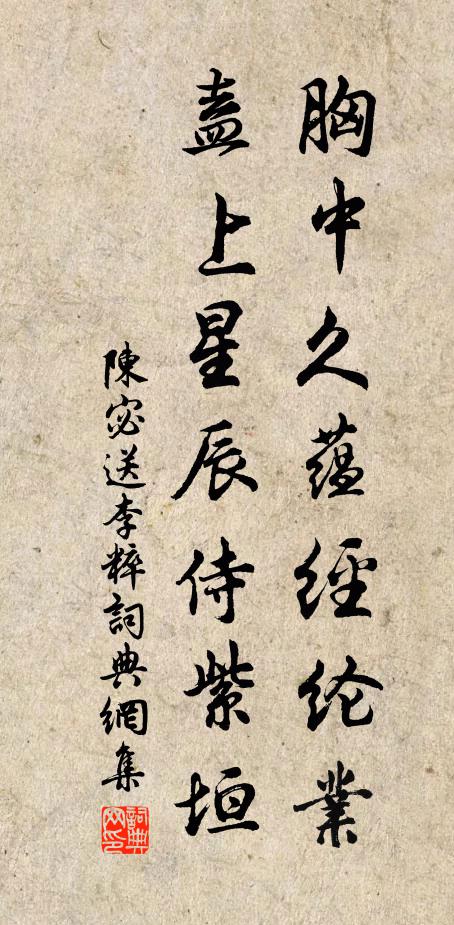 胸中久蕴經纶業
盍上星辰侍紫垣
陳宓送李粹詞典網集
詞典网印